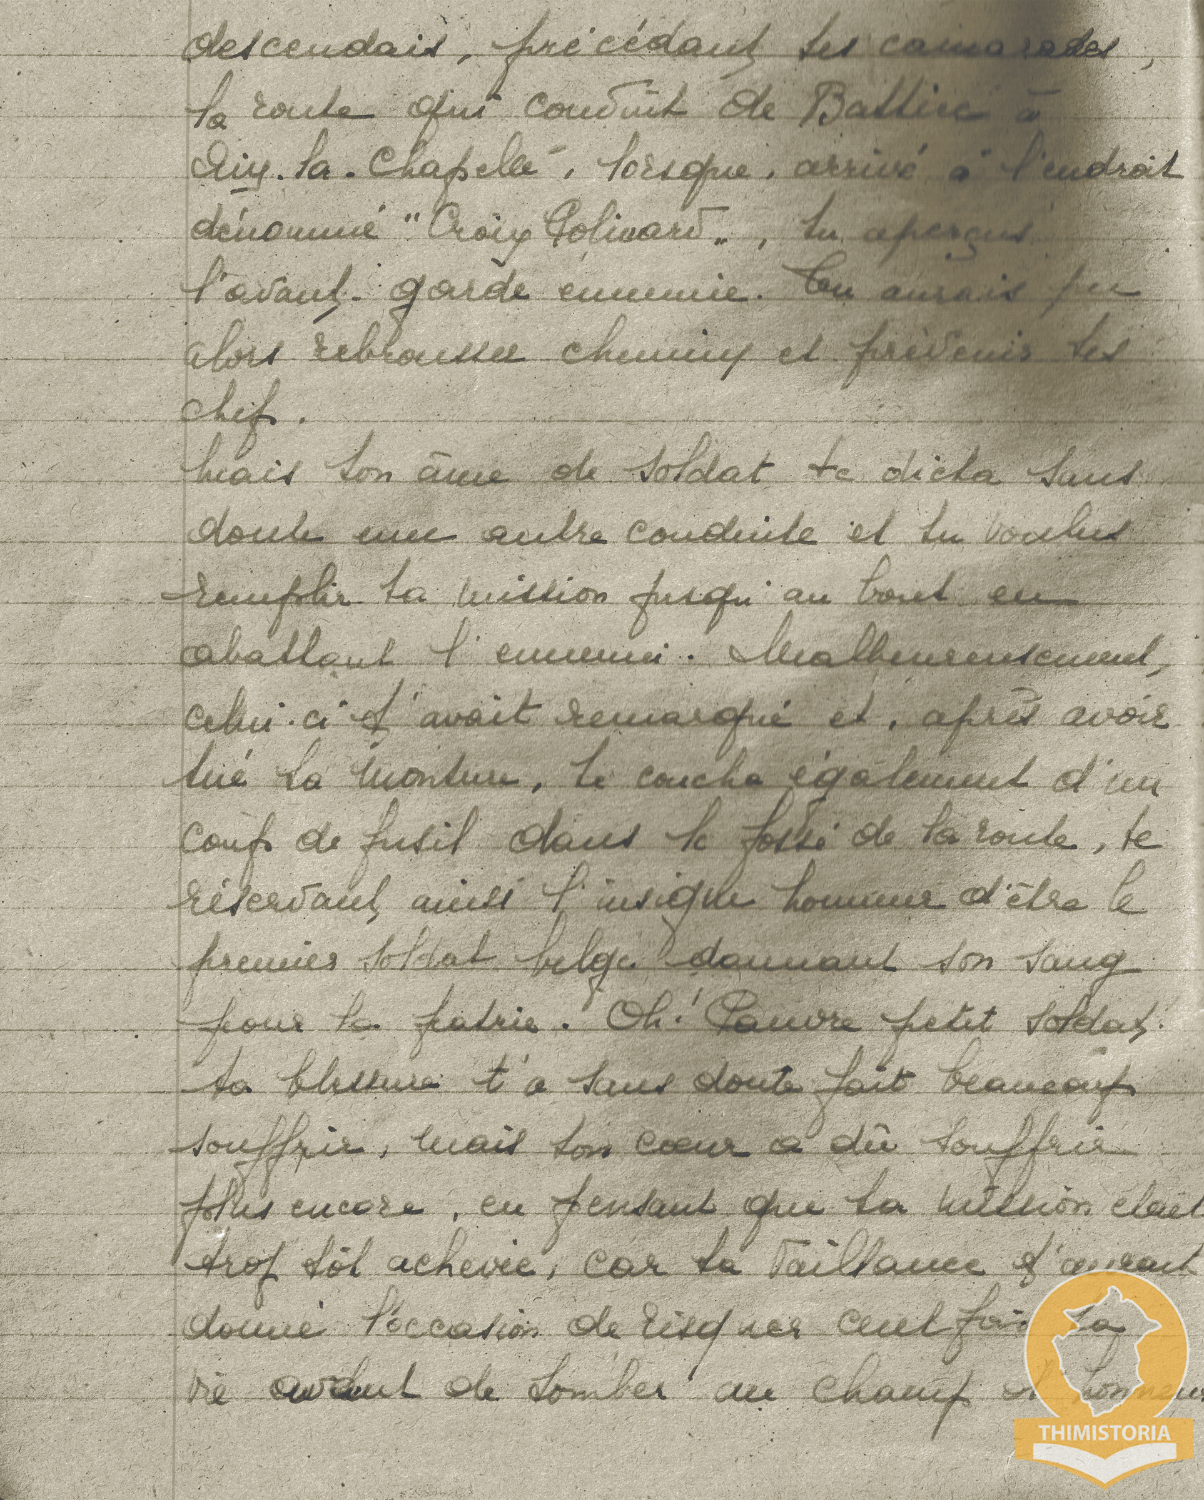 descendais, précédant tes camarades,
la route qui conduit de Battice à
Aix-la-Chapelle, lorsque, arrivé à l'endroit
dénommé "Croix Polinard", tu aperçus
l'avant-garde ennemie. Tu aurais pu
alors rebrousser chemin et prévenir tes
chefs.
Mais ton âme de soldat te dicta sans
doute une autre conduite et tu voulus
remplir ta mission jusqu'au bout en
abattant l'ennemi. Malheureusement,
celui-ci t'avait remarqué et, après avoir
tué ta monture, te coucha également d'un
coup de fusil dans le fossé de la route, te
réservant ainsi l'insigne honneur d'être le
premier soldat belge donnant son sang
pour la patrie. Oh! Pauvre petit soldat,
ta blessure t'a sans doute fait beaucoup
souffrir, mais ton cœur a dû souffrir
plus encore, en pensant que ta mission était
trop tôt achevée, car ta vaillance t'aurait
donné l'occasion de risquer cent fois ta
vie avant de tomber au champ d'honneur
THIMISTORIA